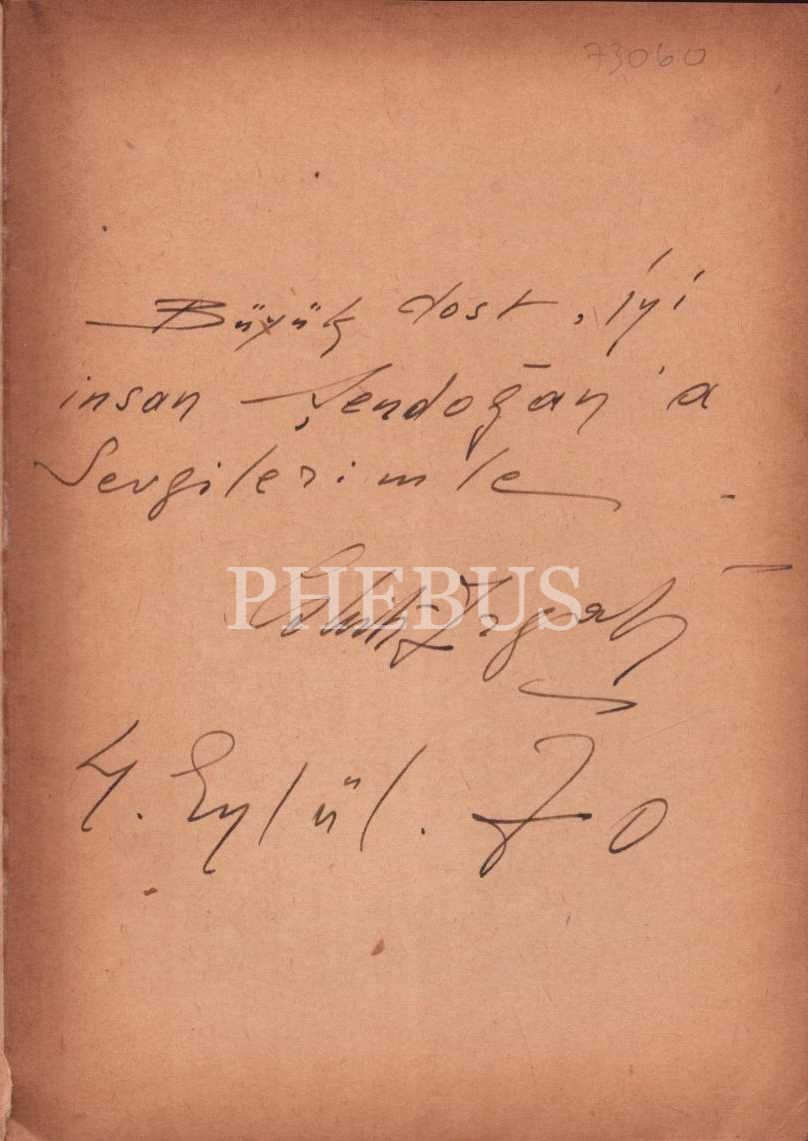 73060
Büyük dost, İyi
insan Şendoğan'a
Sevgilerimle
PHEBUS
Cahit Irgat
4. Eylül. 70